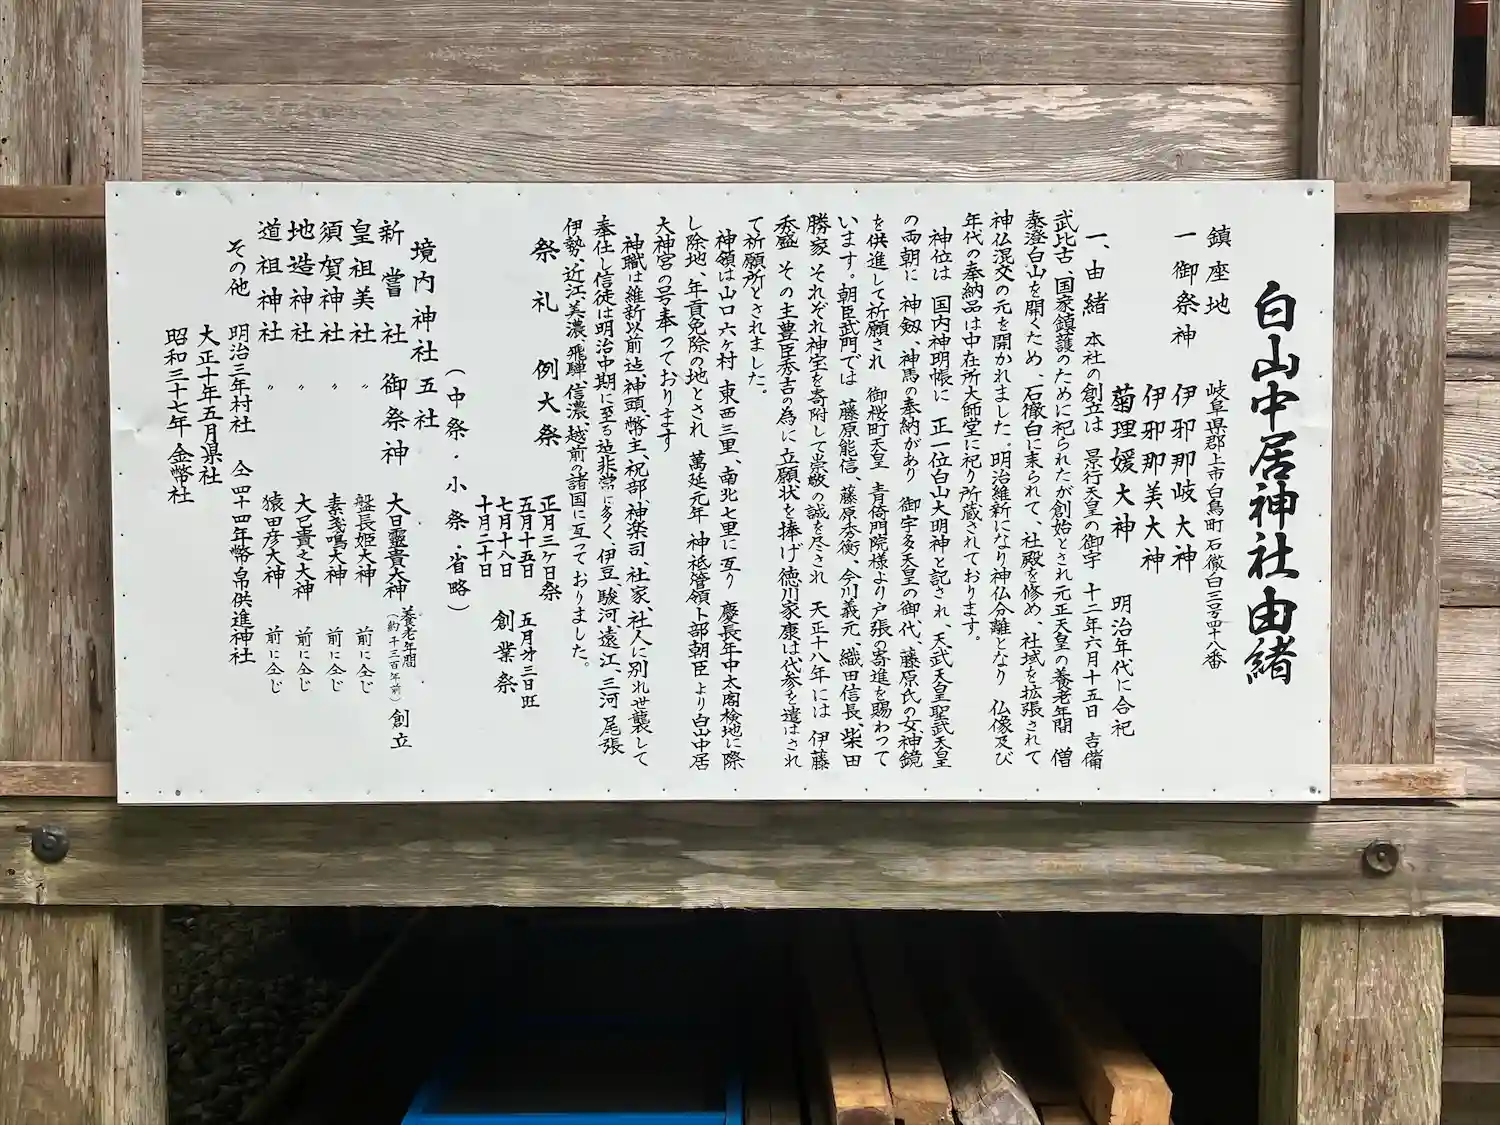 白山中居神社由緒
鎮座地　岐阜県郡上市白鳥町石徹白三号四十八番
一御祭神　伊邪那岐大神
伊邪那美大神
菊理媛大神　明治年代に合祀
一、由緒　本社の創立は　景行天皇の御宇　十二年六月十五日　吉備
武比古、国家鎮護のために祀られたが創始とされ元正天皇の養老年間　僧
泰澄白山を開くため、石徹白に来られて、社殿を修め、社域を拡張されて
神仏混交の元を開かれました。明治維新になり神仏分離となり　仏像及び
年代の奉納品は中在所大師堂に祀り所蔵されております。
神位は　国内神明帳に　正一位白山大明神と記され、天武天皇聖武天皇
の両朝に　神剱、神馬の奉納があり　御宇多天皇の御代、藤原氏の女、神鏡
を供進して祈願され　御桜町天皇　青倚門院様より戸張の寄進を賜わって
います。朝臣武門では　藤原能信、藤原秀衡、今川義元、織田信長、柴田
勝家　それぞれ神宝を寄附して崇敬の誠を尽され　天正十八年には　伊藤
秀盛　その主豊臣秀吉の為に立願状を捧げ　徳川家康は代参を遣はされ
て祈願所とされました。
神領は山口六ヶ村　東西三里、南北七里に亙り　慶長年中太閤検地に際
し除地、年貢免除の地とされ　萬延元年　神祇管領卜部朝臣より白山中居
大神宮の号奉っております
神職は維新以前迠、神頭、幣主、祝部、神楽司、社家、社人に別れ世襲して
奉仕し信徒は明治中期に至る迠非常に多く、伊豆、駿河　遠江、三河　尾張
伊勢、近江　美濃、飛騨、信濃、越前の諸国に亙っておりました。
祭礼　例大祭　正月三ヶ日祭
五月十五日　五月㐧三日旺
七月十八日　創業祭
十月二十日
（中祭・小祭・省略）
境内神社五社
新嘗社　御祭神　大日靈貴大神　養老年間（約千三百年前）創立
皇祖美社　〃　盤長姫大神　前に仝じ
須賀神社　〃　素戔鳴大神　前に仝じ
地造神社　〃　大己貴之大神　前に仝じ
道祖神社　〃　猿田彦大神　前に仝じ
その他　明治三年村社　仝四十四年幣帛供進神社
大正十年五月県社
昭和三十七年　金幣社